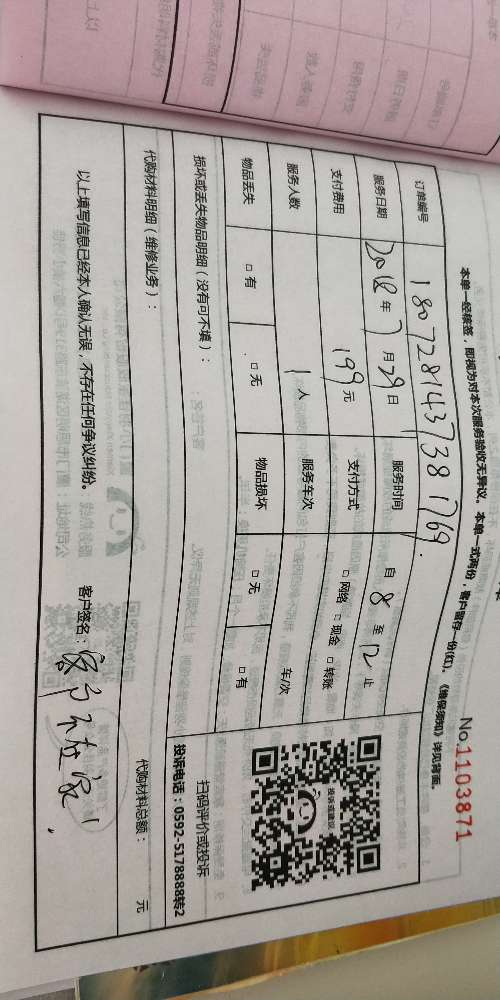 No.1103871
本单一经核签，即视为对本次服务验收无异议。本单一式两份，客户留存一份(红)。《维保须知》详见背面。
订单编号 180728143738 1769.
服务日期 2018年7月29日 服务时间 自 8 至 12 止
支付费用 199元 支付方式 □网络 □现金 □转账
服务人数 1人 服务车次 车/次
物品丢失 □有 □无 物品损坏 □无 □有
损坏或丢失物品明细（没有可不填）：
扫码评价或投诉
投诉电话：0592-5178888转2
代购材料明细（维修业务）：
代购材料总额： 元
以上填写信息已经本人确认无误，不存在任何争议纠纷。 客户签名：